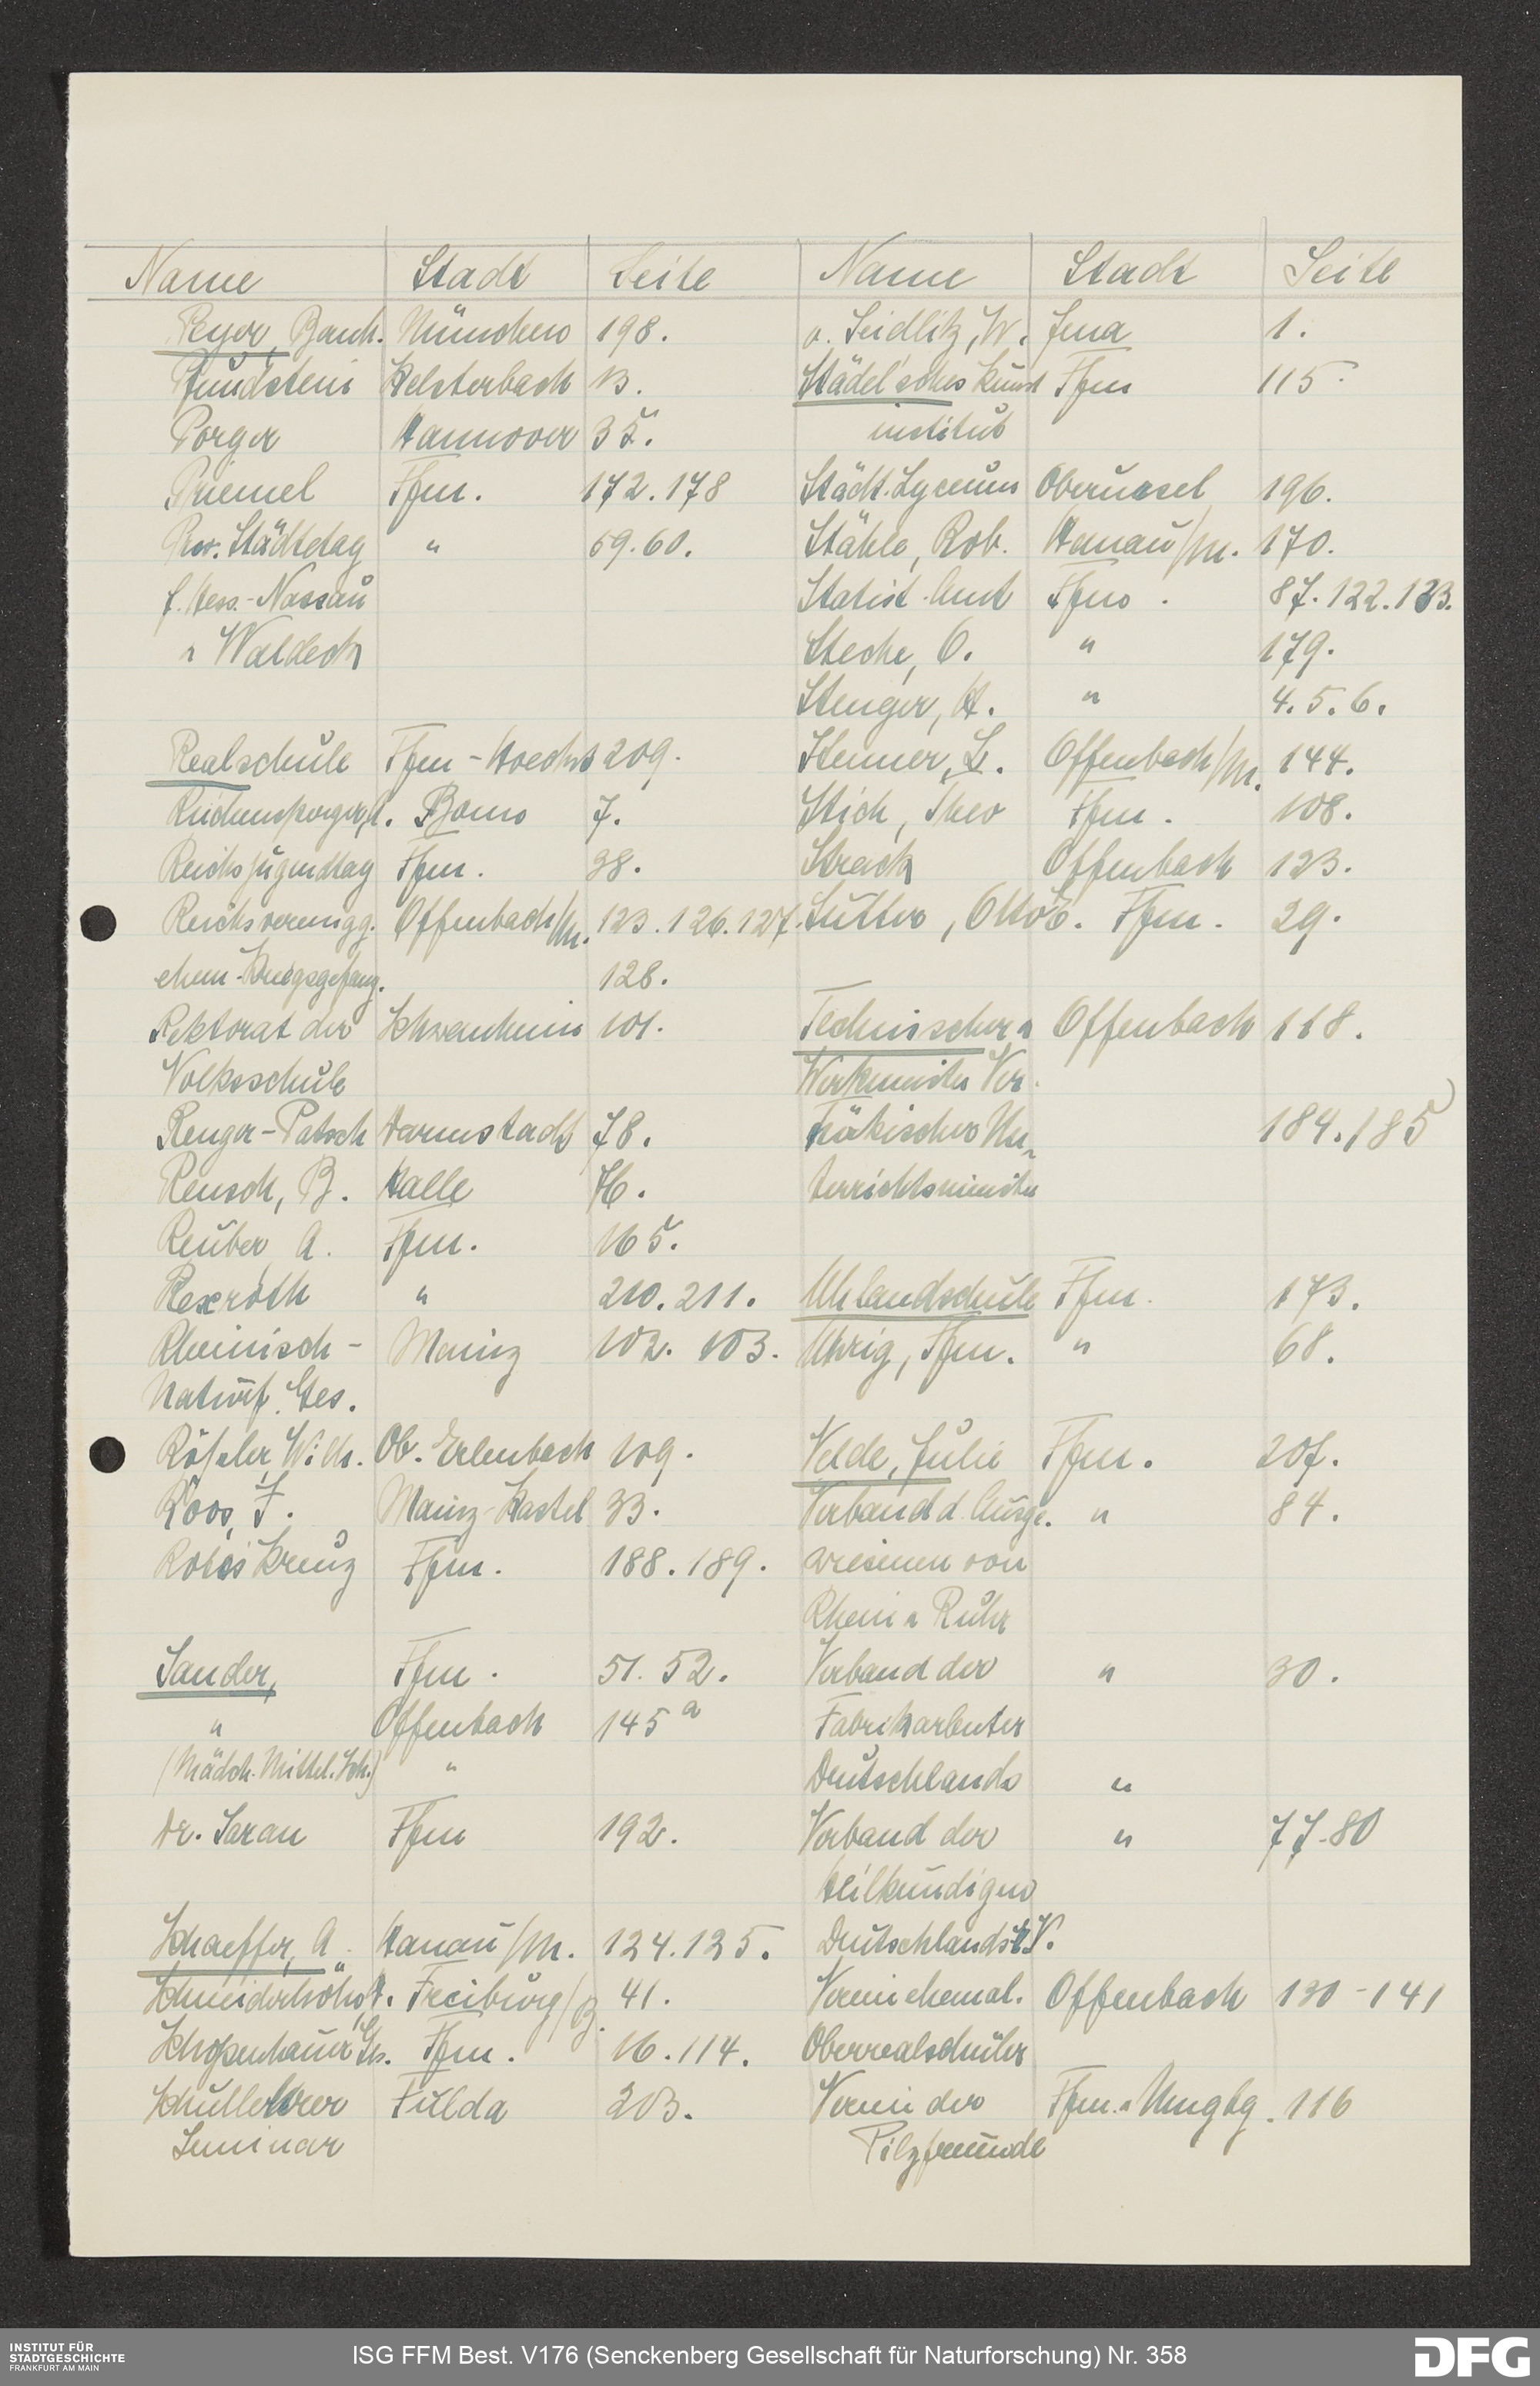 Name Stadt Seite
Peyer, Bank. München 198.
Pfundstein Kelsterbach 13.
Porger Hannover 35.
Priemel Ffm. 172. 178
Prov. Städtetag " 59. 60.
f. Hess.-Nassau
u Waldeck
Realschule Ffm-Hoechst 209.
Reichensperger, A. Bonn 7.
Reichsjugendtag Ffm. 38.
Reichsvereinigg. Offenbach/M. 123. 126. 127.
ehem. Kriegsgefang. 128.
Rektorat der Schwanheim 101.
Volksschule
Renger-Patsch Darmstadt 78.
Rensch, B. Halle
Reuber, A. Ffm. 165.
Rexroth " 210. 211.
Rheinisch- Mainz 102. 103.
Naturf. Ges.
Rößler, Wilh. Ob. Erlenbach 109.
Roos, F. Mainz-Kastel 33.
Rotes Kreuz Ffm. 188. 189.
Sander, Ffm. 51. 52.
" Offenbach 145 a
(Mädch. Mittel. Sch.) "
Dr. Saran Ffm 192.
Schaeffer, A. Hanau/M. 124. 125.
Schneiderhöhn, Freiburg/B. 41.
Schopenhauer Ges. Ffm. 16. 114.
Schullehrer Fulda 203.
Seminar
Name Stadt Seite
v. Seidlitz, W. Jena 1.
Städel'sches Kunst Ffm 115.
institut
Städt. Lyceum Oberursel 196.
Stähle, Rob. Hanau/M. 170.
Statist. Amt Ffm. 87. 122. 123.
Steche, O. " 179.
Stenger, H. " 4. 5. 6.
Stenner, L. Offenbach/M. 144.
Stich, Theo Ffm. 108.
Strack Offenbach 123.
Sutter, Otto E. Ffm. 29.
Technischer u Offenbach 118.
Werkmeister Ver.
Türkischer Un- 184. 185
terrichtsminister
Uhlandschule Ffm. 173.
Uhrig, Ffm. " 68.
Velde, Julie Ffm. 207.
Verband d. Ausge. " 84.
wiesenen von
Rhein u Ruhr
Verband der " 30.
Fabrikarbeiter
Deutschlands "
Verband der " 77-80
Heilkundigen
Deutschlands e.V.
Verein ehemal. Offenbach 130-141
Oberrealschüler
Verein der Ffm. u Umgbg. 116
Pilzfreunde
INSTITUT FÜR
STADTGESCHICHTE
FRANKFURT AM MAIN
ISG FFM Best. V176 (Senckenberg Gesellschaft für Naturforschung) Nr. 358
DFG